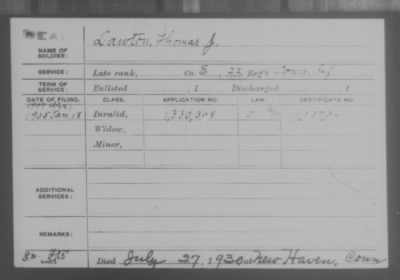 DEAD
NAME OF SOLDIER: Lawton, Thomas J.
SERVICE: Late rank, Co. E, 22 Reg't Conn. Inf.
TERM OF SERVICE: Enlisted , 1 Discharged , 1
DATE OF FILING. CLASS. APPLICATION NO. LAW. CERTIFICATE NO.
1905 Jan. 18 Invalid, 1,330,308
Widow,
Minor,
ADDITIONAL SERVICES:
REMARKS:
Died July 27, 1930 at New Haven, Conn